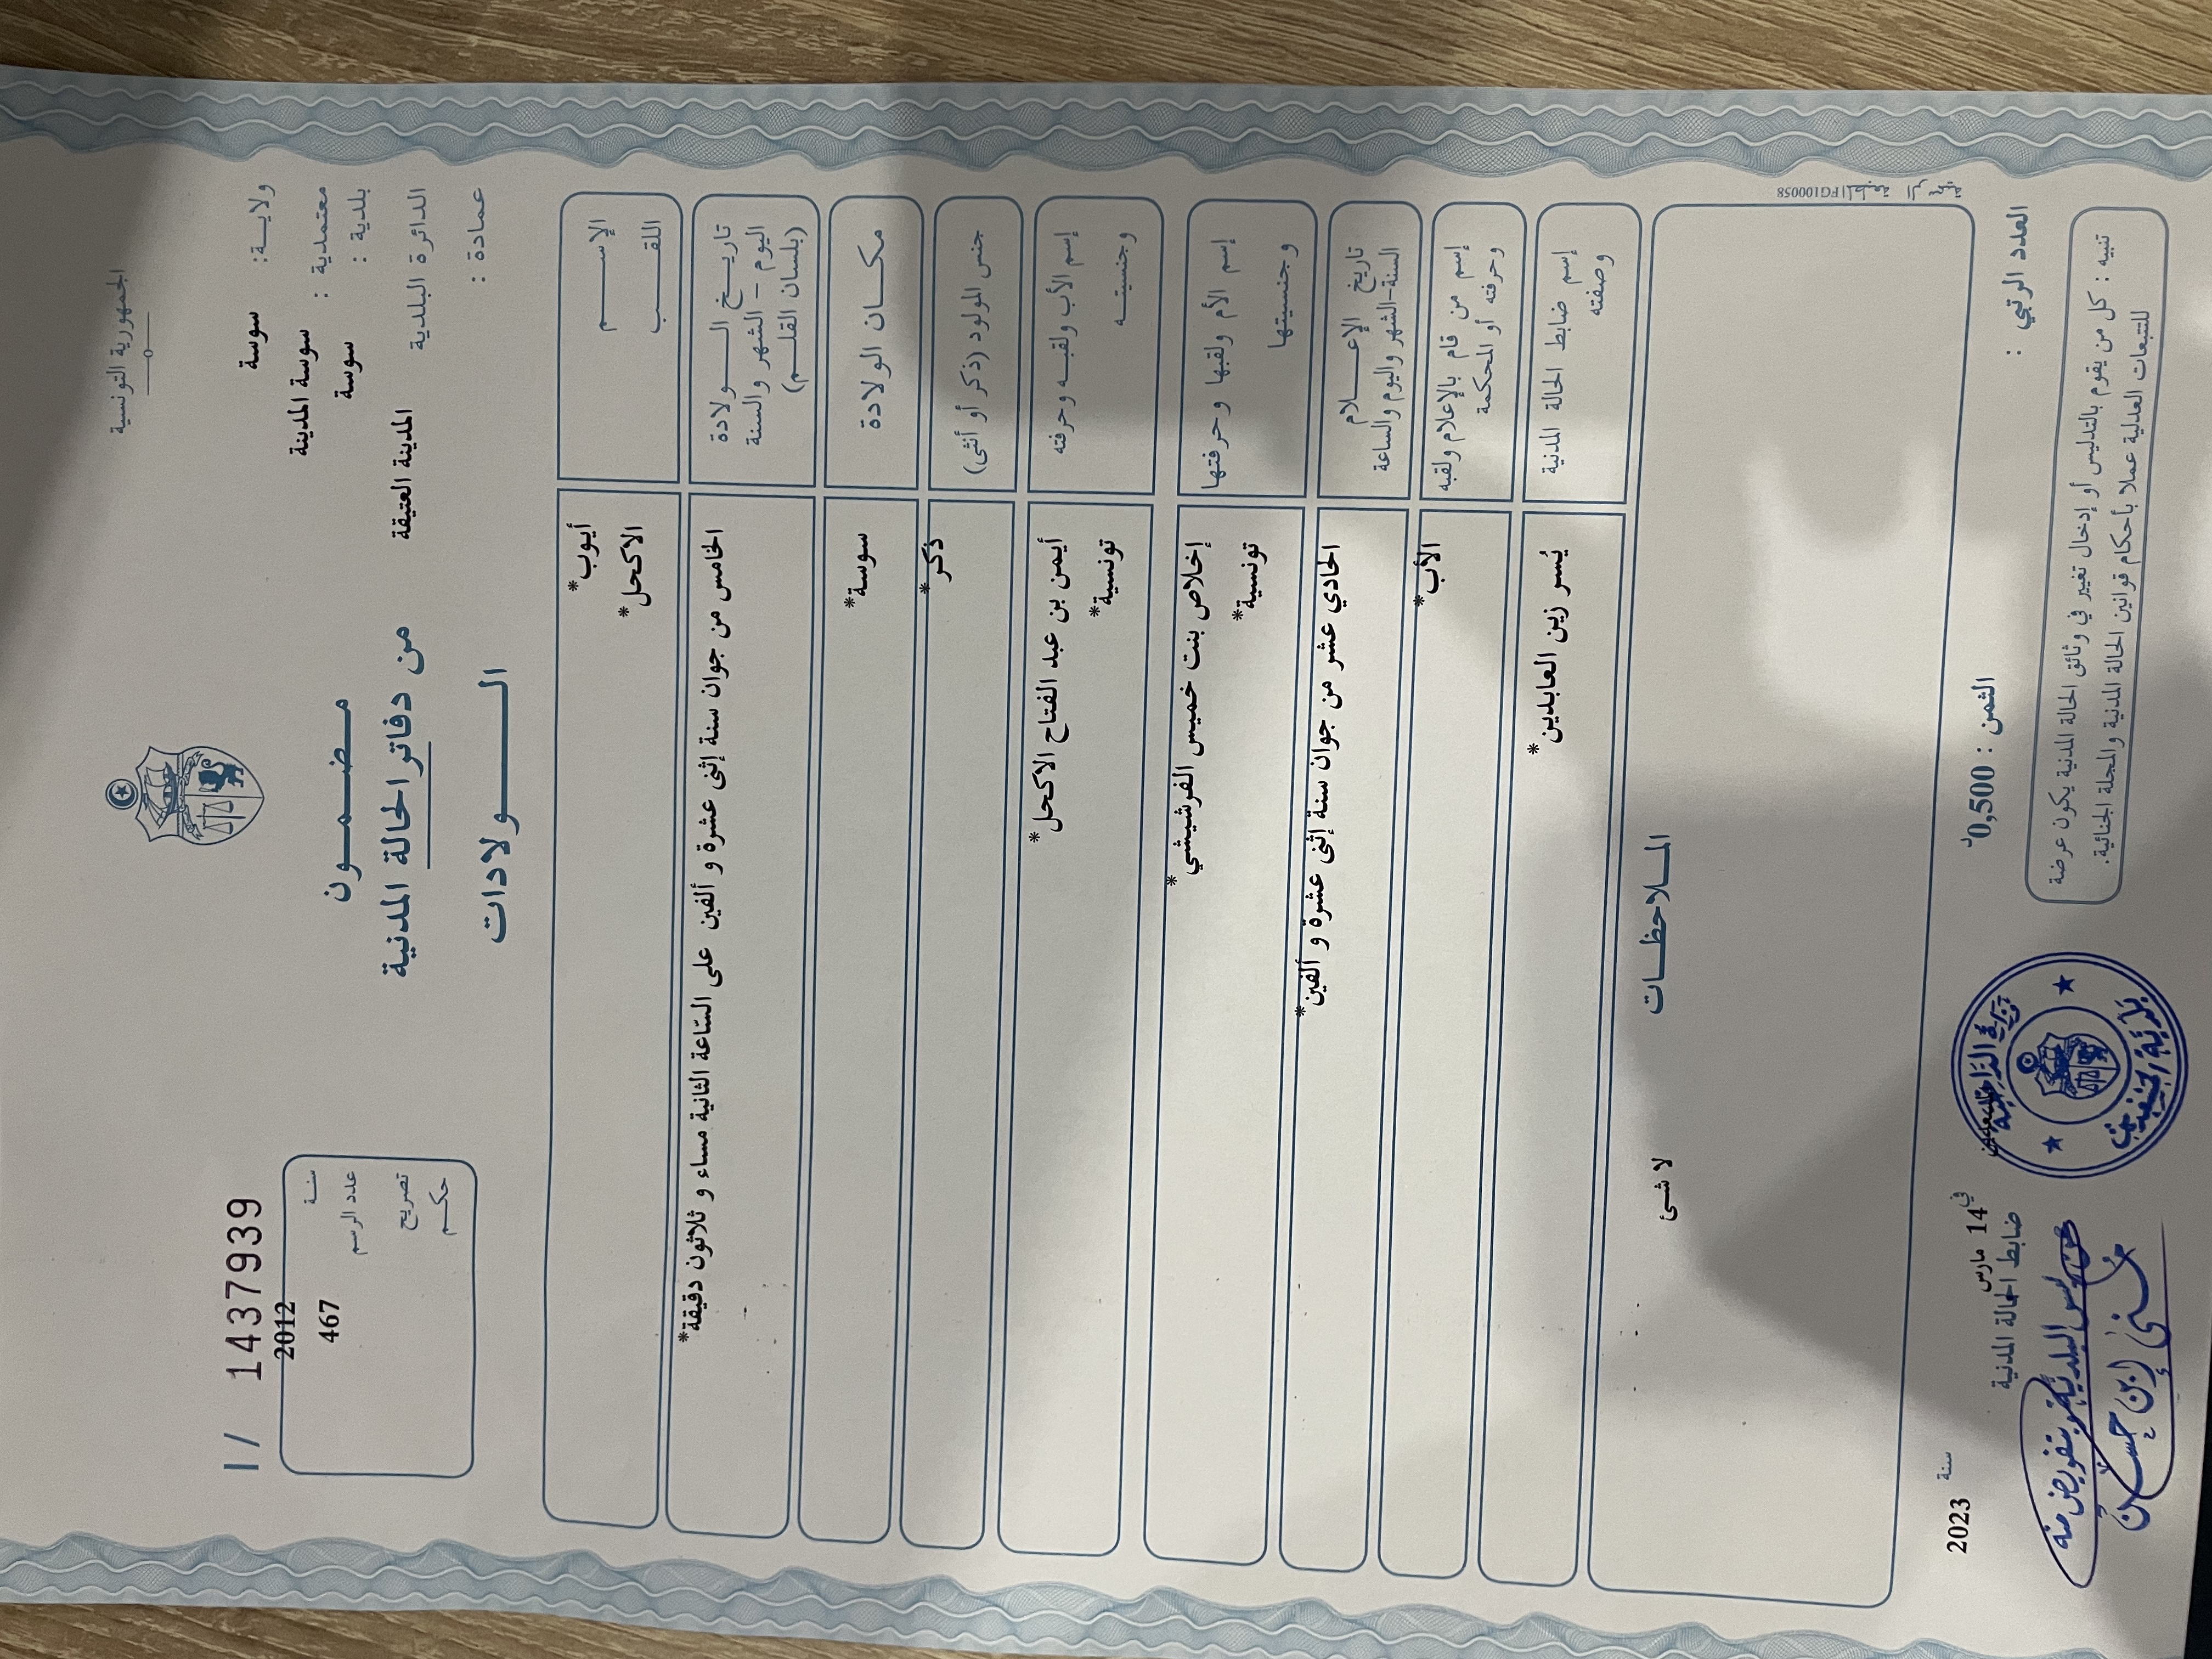 الجمهورية التونسية
ولايـة: سوسة
معتمدية : سوسة المدينة
بلدية : سوسة
الدائرة البلدية المدينة العتيقة
عمادة :
مضمـــون
من دفاتر الحالة المدنية
الـــولادات
I / 14379939
سنـة 2012
عدد الرسم 467
تصريح
حكـم
الإســـم أيوب*
اللقـــب الاكحل*
تاريـخ الــولادة الخامس من جوان سنة إثنى عشرة و ألفين على الساعة الثانية مساء و ثلاثون دقيقة*
اليوم - الشهر والسنة
(بلسان القلـم)
مكــان الولادة سوسة*
جنس المولود (ذكر أو أنثى) ذكر*
إسم الأب ولقبـه وحرفته أيمن بن عبد الفتاح الاكحل*
وجنسيتــه تونسية*
إسم الأم ولقبها وحرفتها إخلاص بنت خميس الفرشيشي*
وجنسيتها تونسية*
تاريخ الإعــلام الحادي عشر من جوان سنة إثنى عشرة و ألفين*
السنة-الشهر واليوم والساعة
إسم من قام بالإعلام ولقبه الأب*
وحرفته أو المحكمة
إسم ضابط الحالة المدنية يُسر زين العابدين*
وصفته
المــلاحظــات
لا شئ
FG100058
العدد الرتبي :
الثمن : 0,500د
في 14 مارس سنة 2023
ضابط الحالة المدنية
تنبيه : كل من يقوم بالتدليس أو إدخال تغيير في وثائق الحالة المدنية يكون عرضة
للتتبعات العدلية عملا بأحكام قوانين الحالة المدنية والمجلة الجنائية.